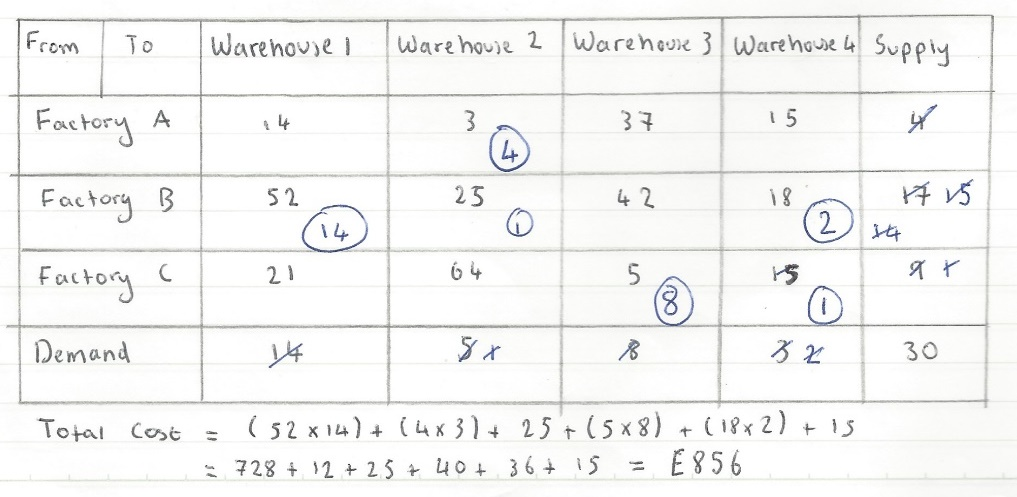 From To Warehouse 1 Warehouse 2 Warehouse 3 Warehouse 4 Supply
Factory A 14 3 37 15 4
4
Factory B 52 25 42 18 17 15
14 1 2 14
Factory C 21 64 5 15 9 1
8 1
Demand 14 5 1 8 3 2 30
Total Cost = (52x14) + (4x3) + 25 + (5x8) + (18x2) + 15
= 728 + 12 + 25 + 40 + 36 + 15 = £856